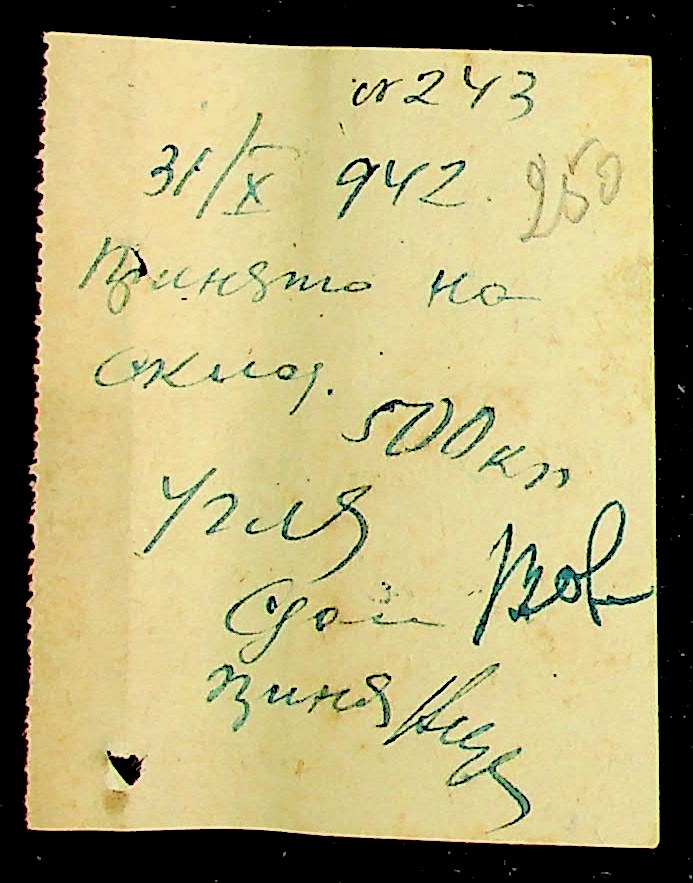 №243
31/X 942.
250
Принято на
склад.
500 кг
Угля
Сдал
принял